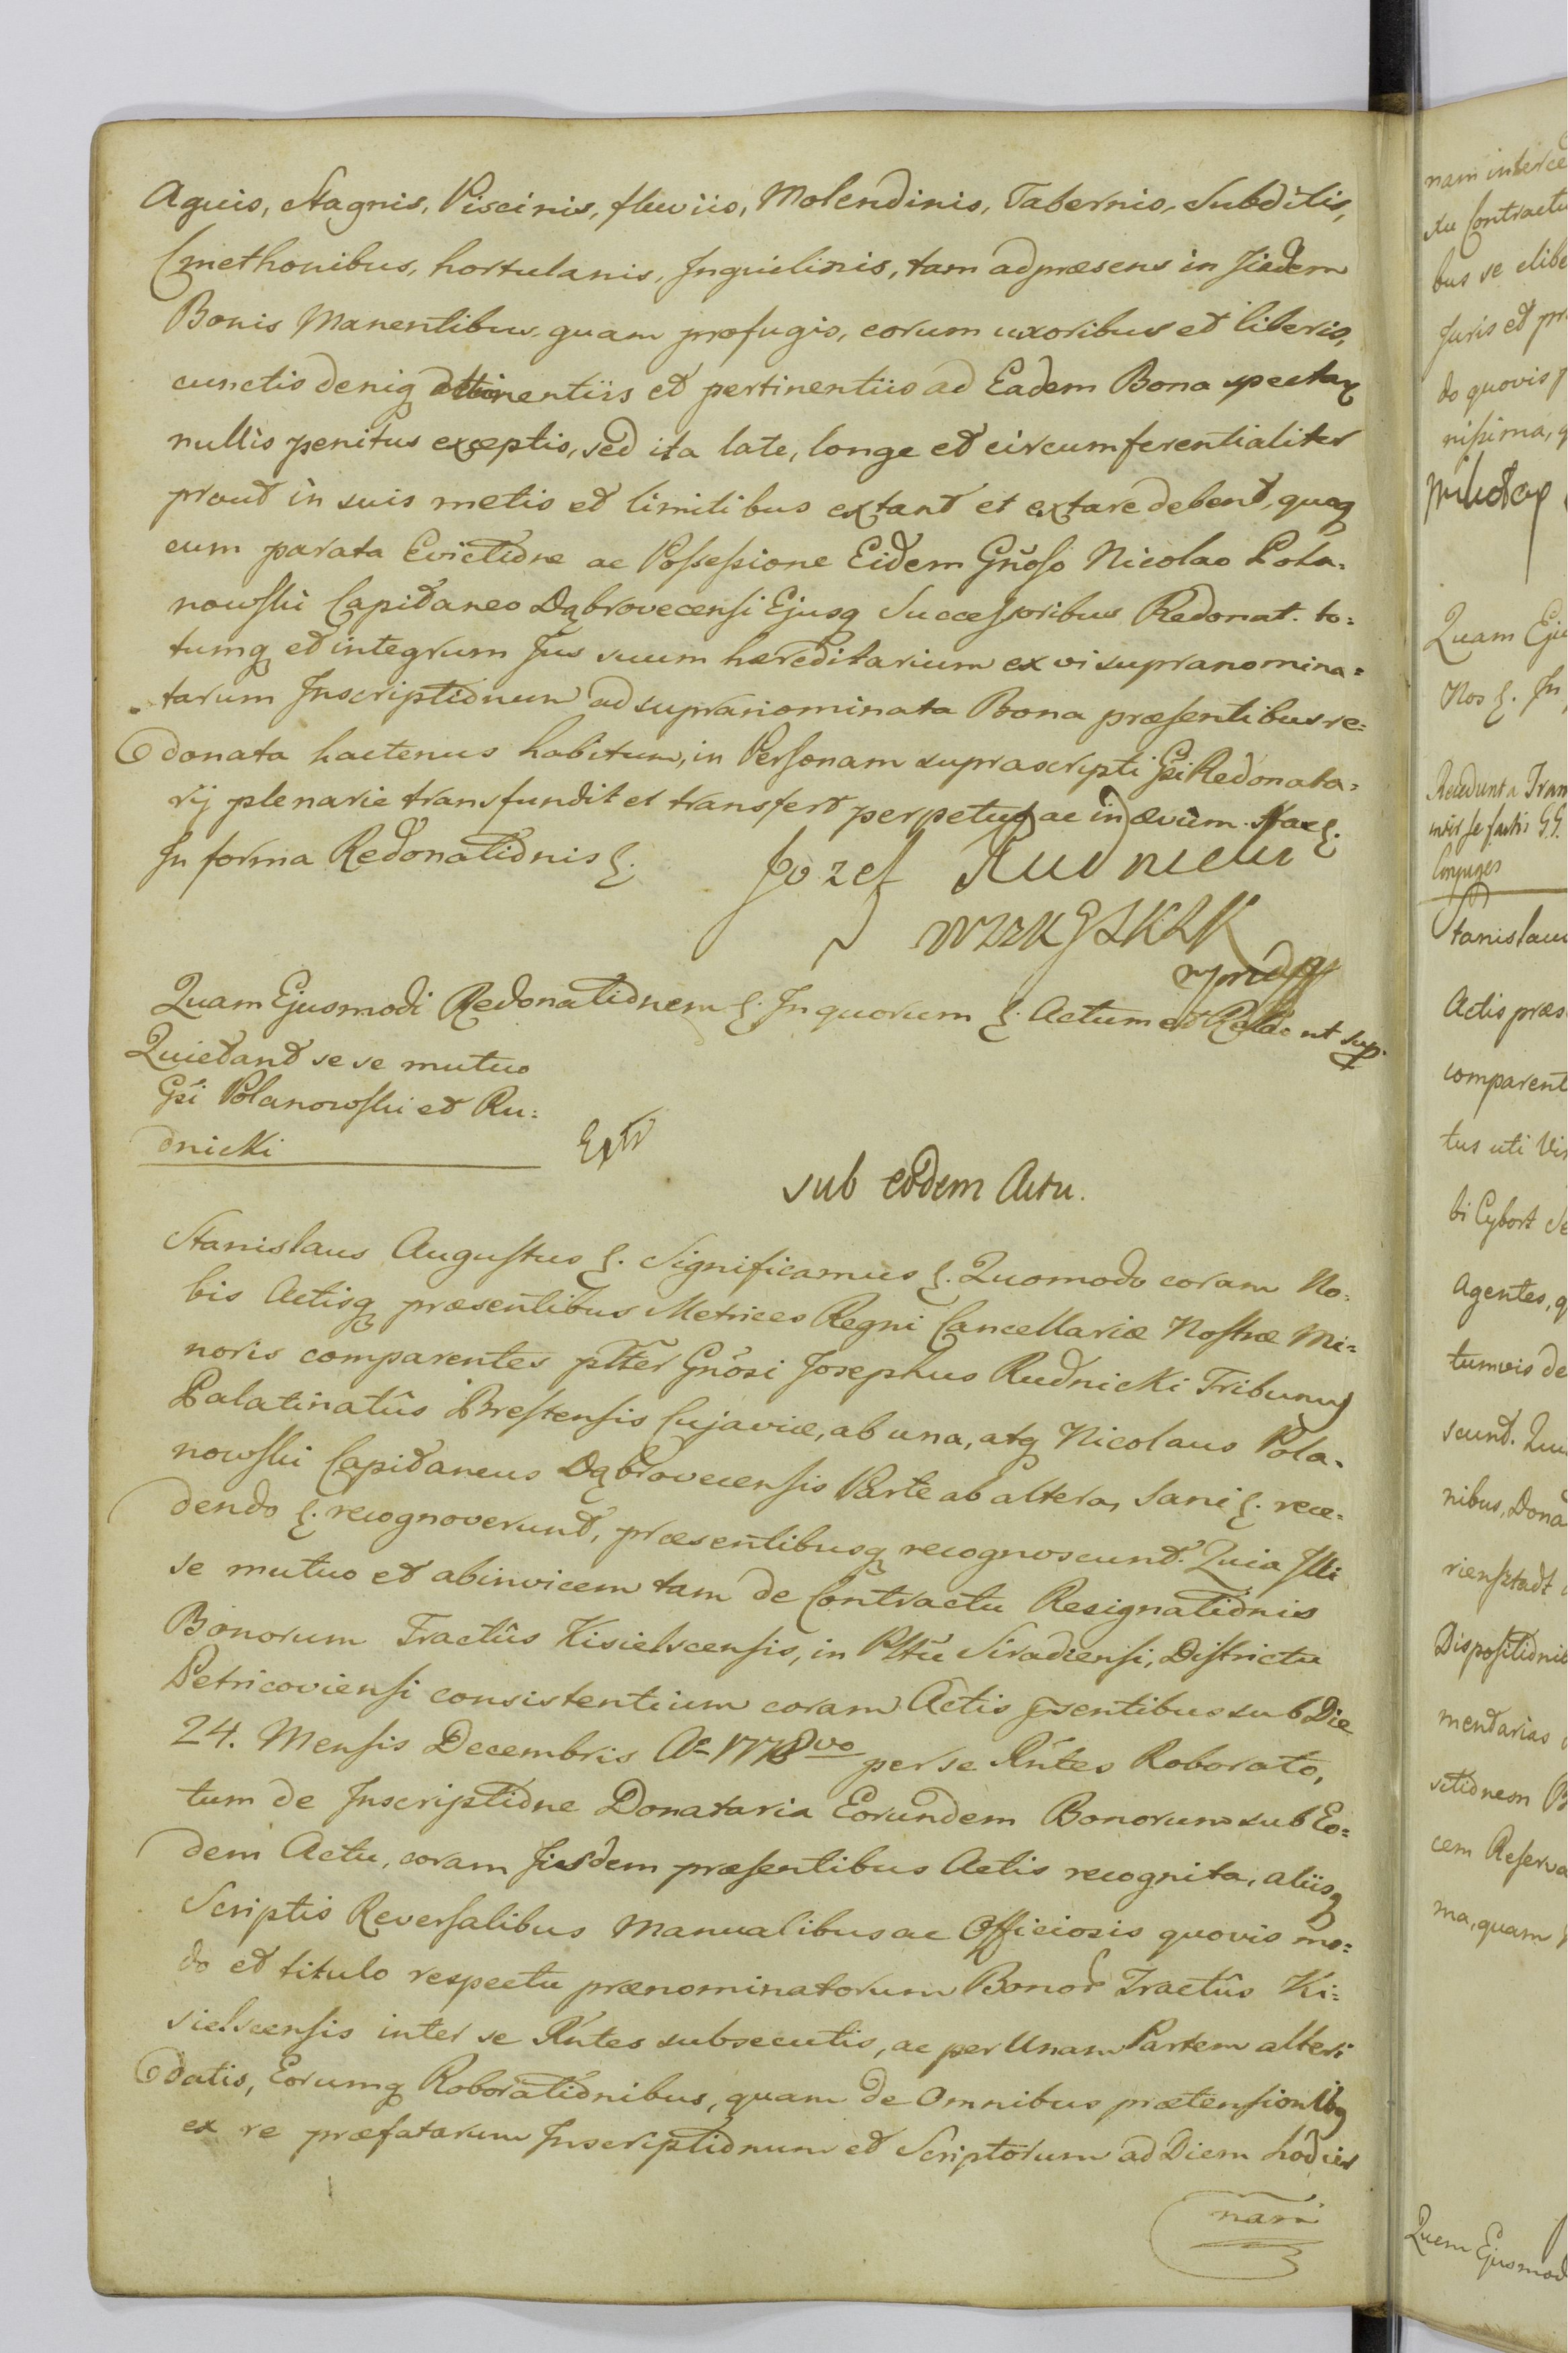 Aquis, Stagnis, Piscinis, fluviis, Molendinis, Tabernis, Subditis,
Cmethonibus, hortulanis, Inquilinis, tam ad præsens in Iisdem
Bonis Manentibus, quam profugis, eorum uxoribus et liberis,
cunctis deniq attinentiis et pertinentiis ad Eadem Bona spectan
nullis penitus exceptis, sed ita late, longe et circumferentialiter
prout in suis metis et limitibus extant et extare debent, quæq
cum parata Evictione ac Possessione Eidem Gnoso Nicolao Pola-
nowski Capitaneo Dąbrovecensi Ejusq Successoribus Redonat. to=
tumq et integrum Jus suum hæreditarium ex vi supranomina=
tarum Inscriptionum ad supranominata Bona præsentibus re=
donata hactenus habitum, in Personam suprascripti Gsi Redonata=
rij plenarie transfundit et transfert perpetuo ac in ævum.
In forma Redonationis
Jozef Rudnicki
Quam Ejusmodi Redonationem In quorum Actum et ut sup.
Quietant se se mutuo
Gsi Polanowski et Ru=
dnicki
sub eodem Actu.
Stanislaus Augustus Significamus Quomodo coram No-
bis Actisq præsentibus Metrices Regni Cancellariæ Nostræ Mi=
noris comparentes plter Gnosi Josephus Rudnicki Tribunus
Palatinatûs Brestensis Cujaviæ, ab una, atq Nicolaus Pola-
nowski Capitaneus Dąbrovecensis Parte ab altera, Sani rece=
dendo recognoverunt, præsentibusq recognoscunt. Quia Illi
se mutuo et abinvicem tam de Contractu Resignationis
Bonorum Tractûs Kisielscensis, in Pltu Siradiensi, Districtu
Petricoviensi consistentium coram Actis psentibus sub Die
24. Mensis Decembris Ao 1778vo per se Rntes Roborato,
tum de Inscriptione Donataria Eorundem Bonorum sub Eo=
dem Actu, coram Iisdem præsentibus Actis recognita, aliisq
Scriptis Reversalibus Manualibus ac Officiosis quovis mo=
do et titulo respectu prænominatorum Bonor Tractûs Ki=
sielscensis inter se Rntes subsecutis, ac per Unam Partem alteri
datis, Eorumq Roborationibus, quam de Omnibus prætensionibq
ex re præfatarum Inscriptionum et Scriptorum ad Diem hodier
nam
nam interce
tu Contractu
bus se elibe
Juris et pr
do quovis p
nissima, q
Quam Eju
Nos In
Recedunt a Tran
inter se factis G.G.
Conjuges
Stanislau
Actis præs
comparent
tus uti Vi
bi Cybort Se
Agentes, q
tumvis de
scunt. Qu
nibus, Dona
riensztadt
Dispositioni
mentarias
sitionem B
cem Reserva
ma, quam
Quem Ejusmod